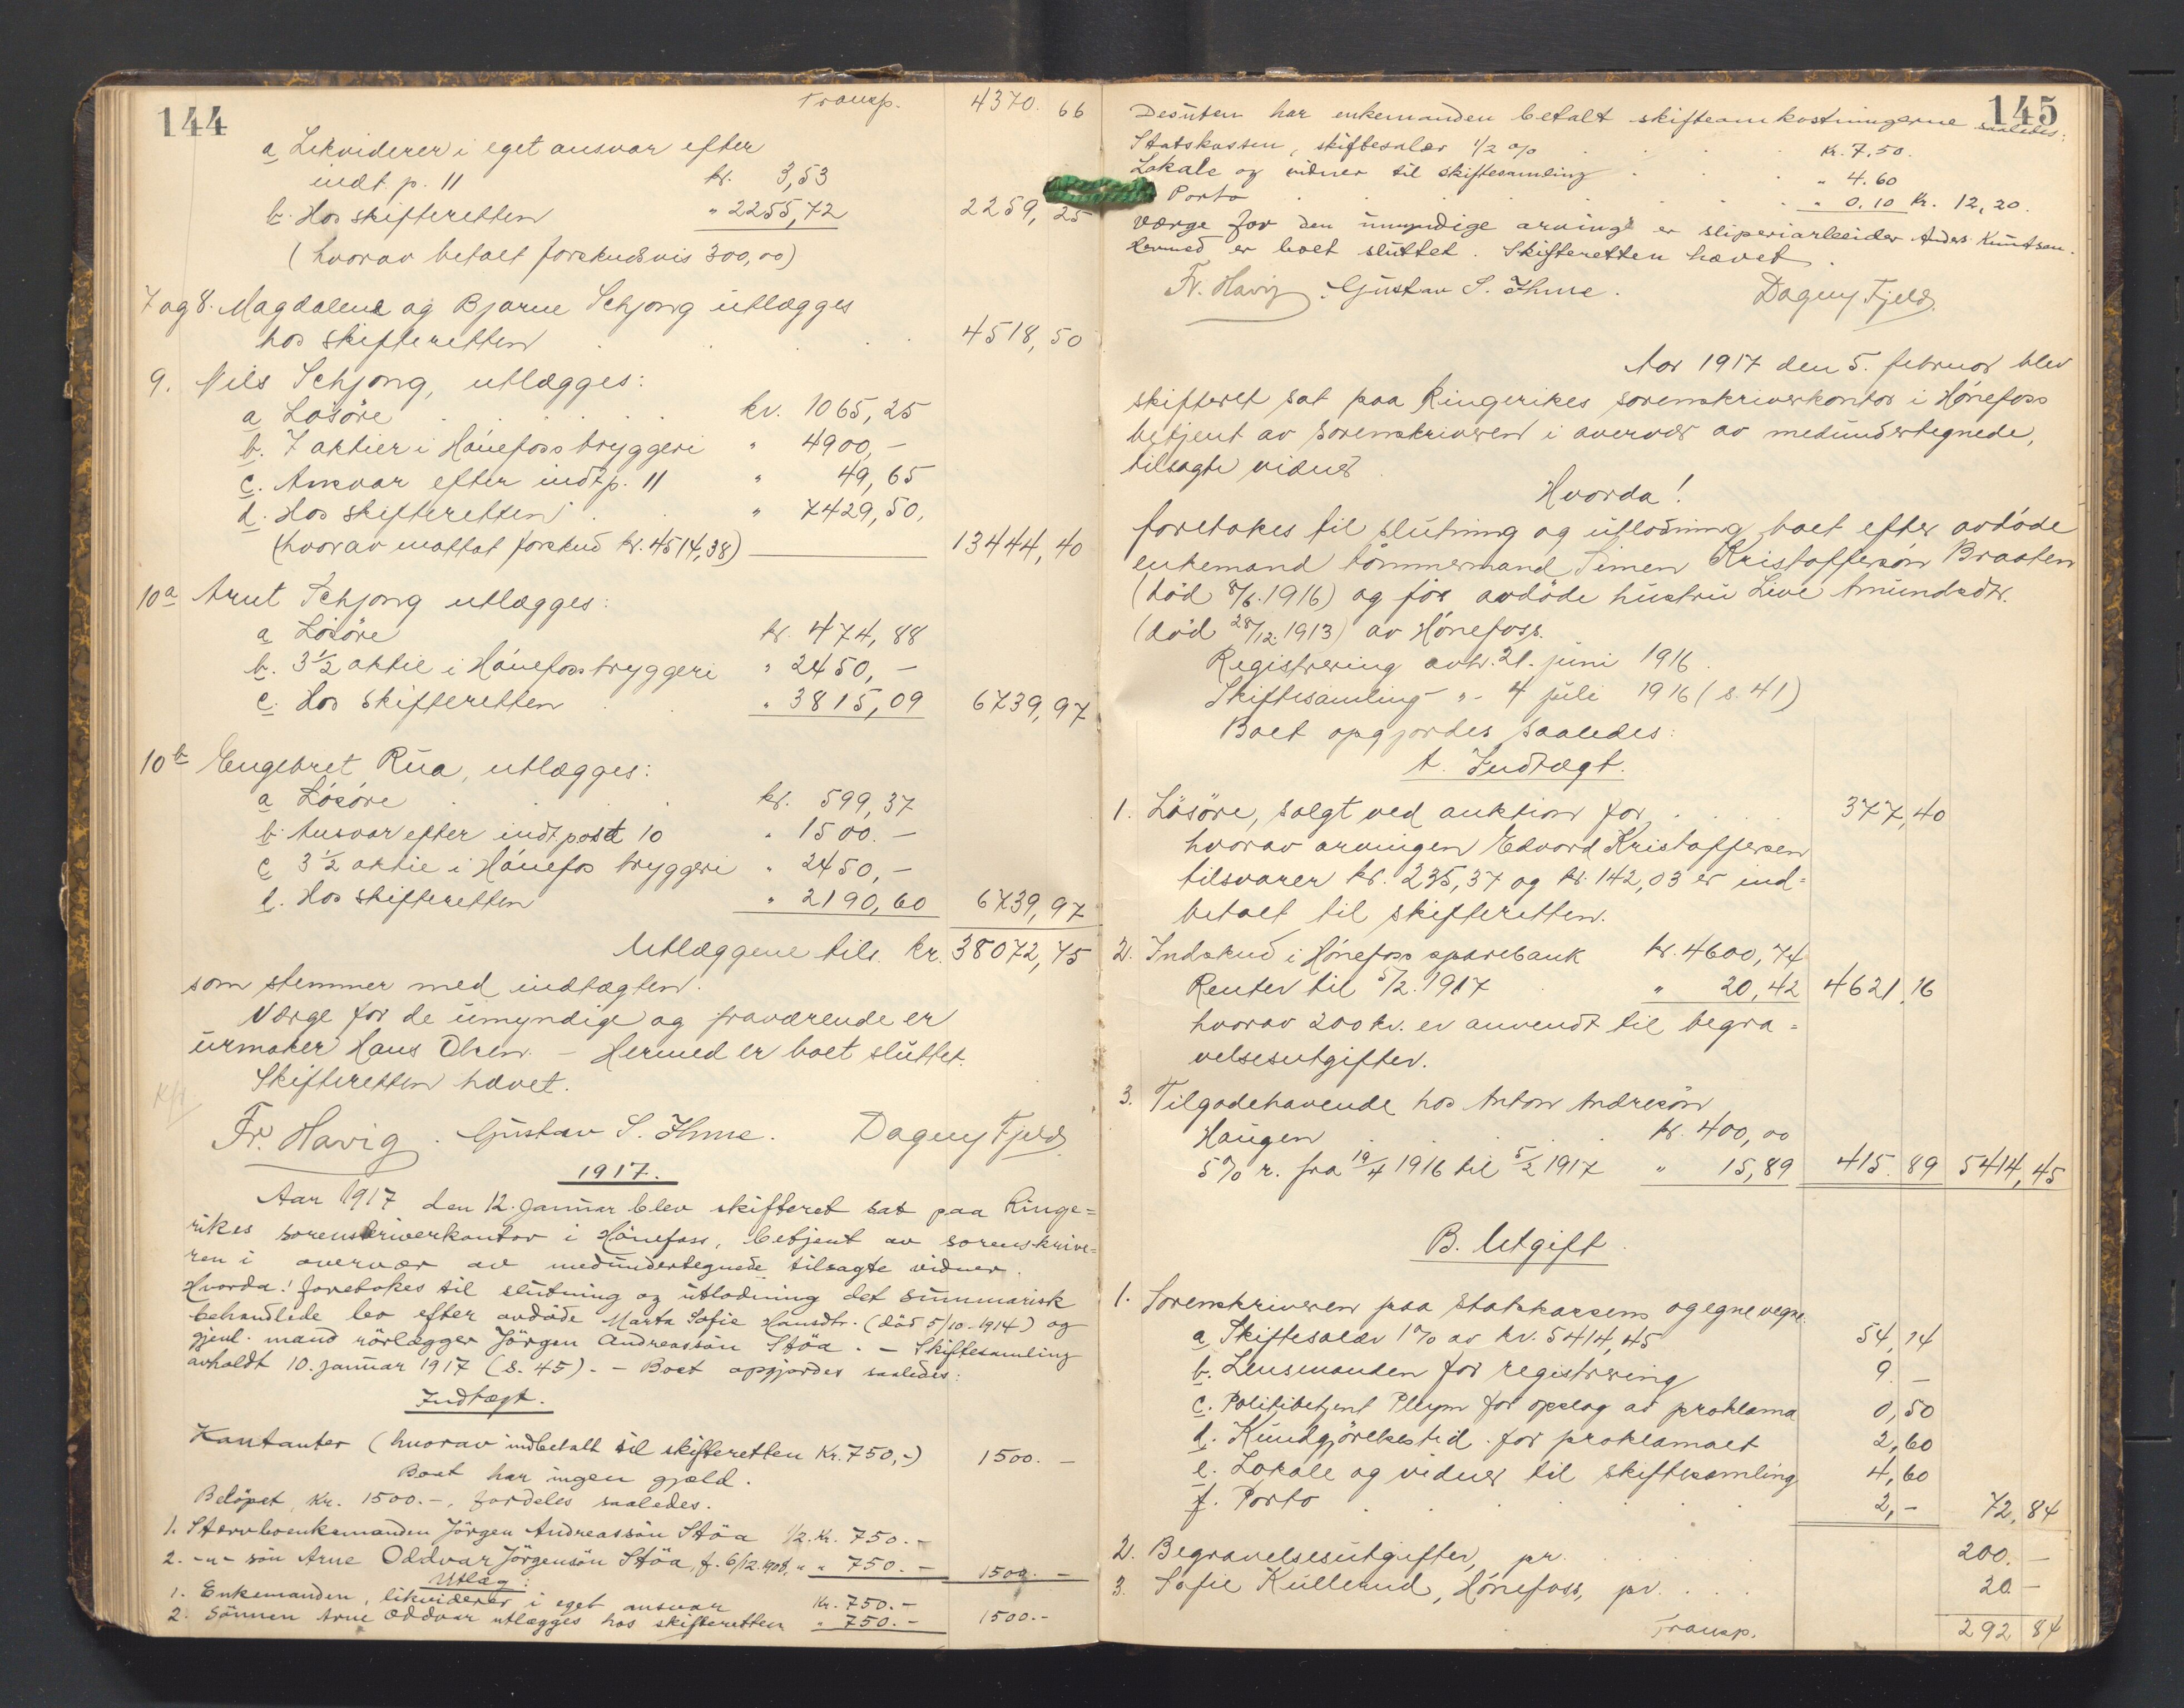 144
Transp. 4370. 66
a Likviderer i eget ansvar efter
indt. p. 11 kr. 3,53
b. Hos skifteretten " 2255,72 2259, 25
(hvorav betalt forskudsvis 300,00)
7 og 8. Magdalene og Bjarne Schjong utlægges
hos skifteretten 4518, 50
9. Nils Schjong, utlægges:
a Løsøre kr. 1065,25
b. 7 aktier i Hönefoss bryggeri " 4900,-
c. Ansvar efter indt p. 11 " 49,65
d. Hos skifteretten " 7429,50,
(hvorav mottat forskud kr. 4514,38) 13444, 40
10a Arnt Schjong utlægges:
a Lösöre kr. 474, 88
b. 3 1/2 aktie i Hönefoss bryggeri " 2450,-
c. Hos skifteretten " 3815,09 6739,97
10b Engebret Rua, utlægges:
a Lösöre kr. 599,37
b. Ansvar efter indt. post 10 " 1500.-
c 3 1/2 aktie i Hönefos bryggeri " 2450,-
d. Hos skifteretten " 2190,60 6739,97
Utlæggene tils. kr. 38072,75
som stemmer med indtægten.
Værge for de umyndige og fraværende er
urmaker Hans Olsen. - Hermed er boet sluttet.
Skifteretten hævet.
Fr. Havig. Gustav S. Ihme. Dagny Fjeld
1917.
Aar 1917 den 12. januar blev skifteret sat paa Ringe=
rikes sorenskriverkontor i Hönefoss, betjent av sorenskrive=
ren i overvær av medundertegnede tilsagte vidner.
Hvorda! foretokes til slutning og utlodning det summarisk
behandlede bo efter avdöde Marta Sofie Hansdtr. (död 5/10-1914) og
gjenl. mand rörlægger Jörgen Andreassön Stöa. - Skiftesamling
avholdt 10. januar 1917 (s. 45). - Boet opgjordes saaledes:
Indtægt.
Kontanter (hvorav indbetalt til skifteretten Kr. 750,-) 1500. -
Boet har ingen gjæld.
Belöpet, Kr. 1500.-, fordeles saaledes.
1. Stervboenkemanden Jörgen Andreassön Stöa 1/2. Kr. 750.-
2. -"- sön Arne Oddvar Jörgensön Stöa, f. 6/12.1908, " " 750.- 1500. -
Utlæg:
1. Enkemanden, likviderer i eget ansvar Kr. 750.-
2. Sönnen Arne Oddvar utlægges hos skifteretten " 750.- 1500.-
145
Desuten har enkemanden betalt skifteomkostningerne saaledes:
Statskassen, skiftesalær 1/2 % Kr. 7.50.
Lokale og vidner til skiftesamling " 4.60
Porto " 0.10 Kr. 12,20.
Værge for den umyndige arving er sliperiarbeider Anders Knutsen.
Hermed er boet sluttet. Skifteretten hævet.
Fr. Havig Gustav S. Ihme. Dagny Fjeld.
Aar 1917 den 5. februar blev
skifteret sat paa Ringerikes sorenskriverkontor i Hönefoss
betjent av sorenskriveren i overvær av medundertegnede,
tilsagte vidner
Hvorda!
foretokes til slutning og utlodning boet efter avdöde
enkemand tömmermand Simen Kristoffersön Braaten
(död 8/6.1916) og för avdöde hustru Live Amundsdtr.
(död 28/12.1913) av Hönefoss.
Registrering avh. 21. juni 1916.
Skiftesamling -"- 4 juli 1916 (s. 41)
Boet opgjordes saaledes:
A. Indtægt.
1. Lösöre, solgt ved auktion for 377,40
hvorav arvingen Edvard Kristoffersen
tilsvarer kr. 235,37 og kr. 142,03 er ind=
betalt til skifteretten.
2. Indskud i Hönefoss sparebank kr. 4600,74
Renter til 5/2.1917 " 20,42 4621,16
hvorav 200 kr. er anvendt til begra=
velsesutgifter.
3. Tilgodehavende hos Anton Andresön
Haugen kr. 400,00
5% r. fra 19/4 1916 til 5/2 1917 " 15,89 415.89 5414,45
B. Utgift.
1. Sorenskriveren paa statskassens og egne vegne:
a Skiftesalær 1% av kr. 5414,45 54,14
b. Lensmanden for registrering 9 -
c. Politibetjent Pleym for opslag av proklama 0,50
d. Kundgjörelsestid. for proklamaet 2,60
e. Lokale og vidner til skiftesamling 4,60
f. Porto 2,- 72,84
2. Begravelsesutgifter, pr. 200. -
3. Sofie Kullerud, Hönefoss, pr. 20 -
Transp. 292 84